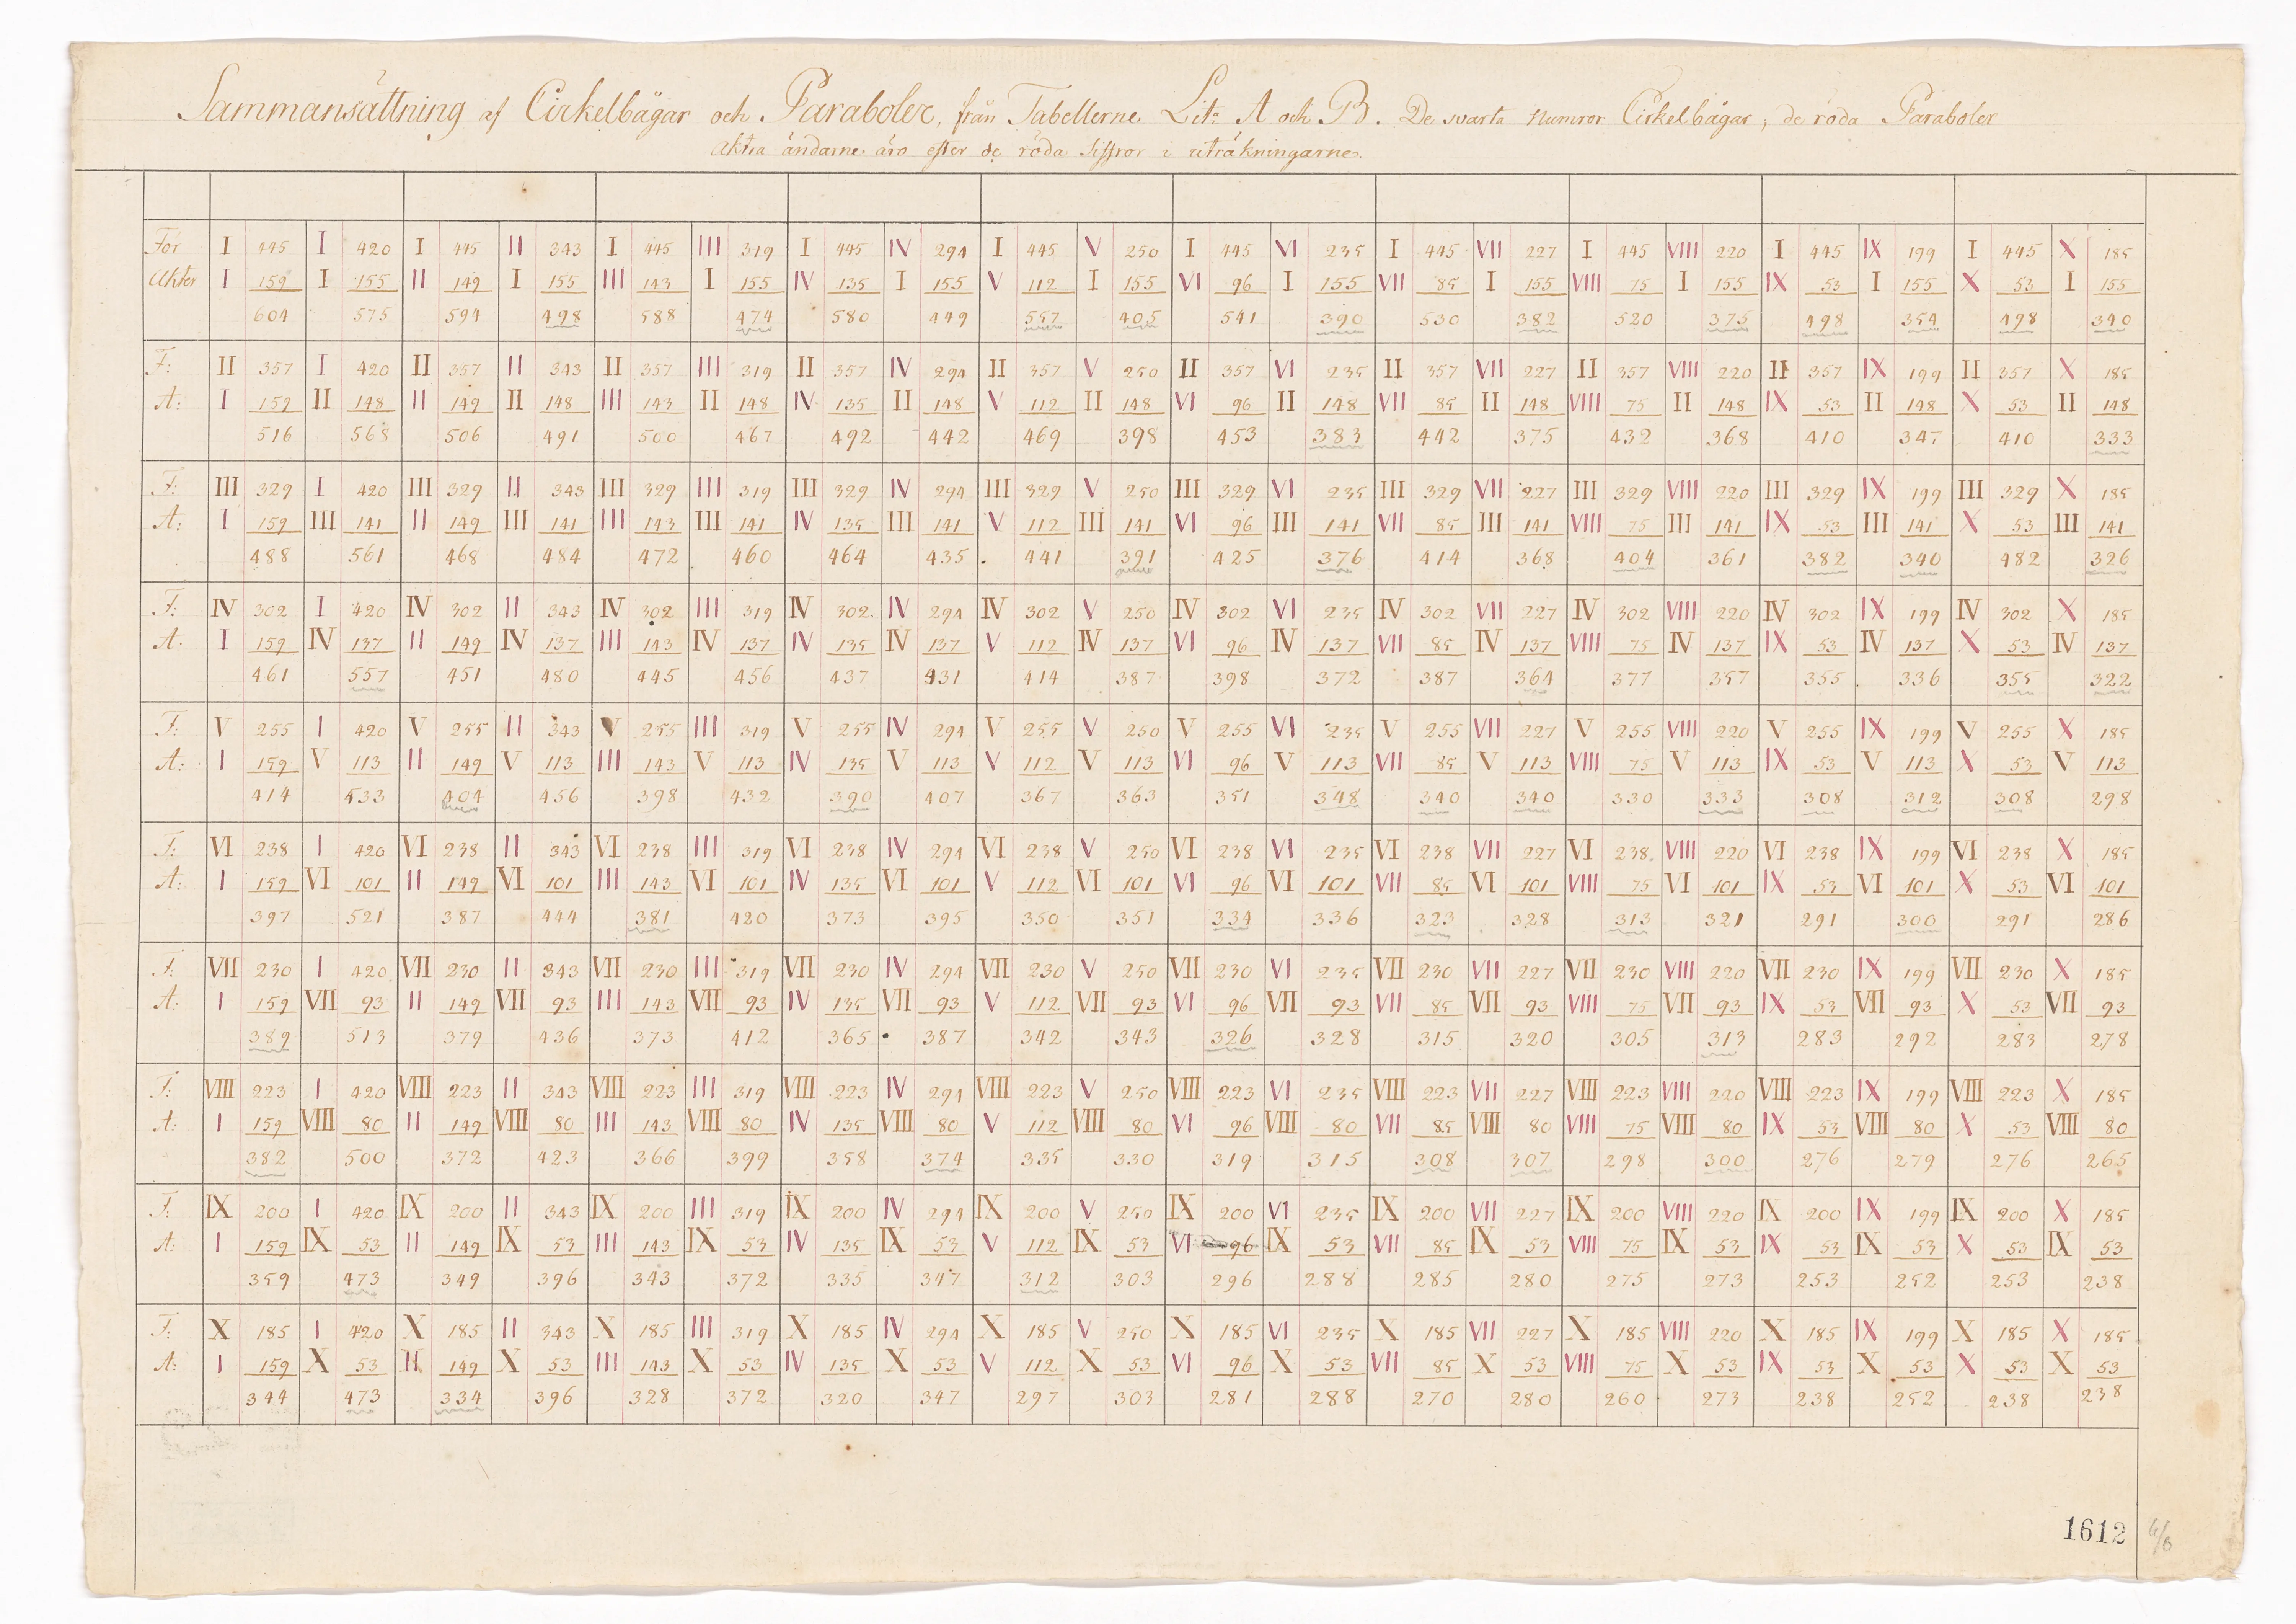 Sammansättning af Cirkelbågar och Paraboler, från Tabellerne Litr A och B. De svarta Numror Cirkelbågar; de röda Paraboler
Aktra ändarne äro efter de röda siffror i uträkningarne.
För I 445 I 420 I 445 II 343 I 445 III 319 I 445 IV 294 I 445 V 250 I 445 VI 235 I 445 VII 227 I 445 VIII 220 I 445 IX 199 I 445 X 185
Akter I 159 I 155 II 149 I 155 III 143 I 155 IV 135 I 155 V 112 I 155 VI 96 I 155 VII 85 I 155 VIII 75 I 155 IX 53 I 155 X 53 I 155
604 575 594 498 588 474 580 449 557 405 541 390 530 382 520 375 498 354 498 340
F: II 357 I 420 II 357 II 343 II 357 III 319 II 357 IV 294 II 357 V 250 II 357 VI 235 II 357 VII 227 II 357 VIII 220 II 357 IX 199 II 357 X 185
A: I 159 II 148 II 149 II 148 III 143 II 148 IV 135 II 148 V 112 II 148 VI 96 II 148 VII 85 II 148 VIII 75 II 148 IX 53 II 148 X 53 II 148
516 568 506 491 500 467 492 442 469 398 453 383 442 375 432 368 410 347 410 333
F: III 329 I 420 III 329 II 343 III 329 III 319 III 329 IV 294 III 329 V 250 III 329 VI 235 III 329 VII 227 III 329 VIII 220 III 329 IX 199 III 329 X 185
A: I 159 III 141 II 149 III 141 III 143 III 141 IV 135 III 141 V 112 III 141 VI 96 III 141 VII 85 III 141 VIII 75 III 141 IX 53 III 141 X 53 III 141
488 561 468 484 472 460 464 435 441 391 425 376 414 368 404 361 382 340 482 326
F: IV 302 I 420 IV 302 II 343 IV 302 III 319 IV 302 IV 294 IV 302 V 250 IV 302 VI 235 IV 302 VII 227 IV 302 VIII 220 IV 302 IX 199 IV 302 X 185
A: I 159 IV 137 II 149 IV 137 III 143 IV 137 IV 135 IV 137 V 112 IV 137 VI 96 IV 137 VII 85 IV 137 VIII 75 IV 137 IX 53 IV 137 X 53 IV 137
461 557 451 480 445 456 437 431 414 387 398 372 387 364 377 357 355 336 355 322
F: V 255 I 420 V 255 II 343 V 255 III 319 V 255 IV 294 V 255 V 250 V 255 VI 235 V 255 VII 227 V 255 VIII 220 V 255 IX 199 V 255 X 185
A: I 159 V 113 II 149 V 113 III 143 V 113 IV 135 V 113 V 112 V 113 VI 96 V 113 VII 85 V 113 VIII 75 V 113 IX 53 V 113 X 53 V 113
414 533 404 456 398 432 390 407 367 363 351 348 340 340 330 333 308 312 308 298
F: VI 238 I 420 VI 238 II 343 VI 238 III 319 VI 238 IV 294 VI 238 V 250 VI 238 VI 235 VI 238 VII 227 VI 238 VIII 220 VI 238 IX 199 VI 238 X 185
A: I 159 VI 101 II 149 VI 101 III 143 VI 101 IV 135 VI 101 V 112 VI 101 VI 96 VI 101 VII 85 VI 101 VIII 75 VI 101 IX 53 VI 101 X 53 VI 101
397 521 387 444 381 420 373 395 350 351 334 336 323 328 313 321 291 300 291 286
F: VII 230 I 420 VII 230 II 343 VII 230 III 319 VII 230 IV 294 VII 230 V 250 VII 230 VI 235 VII 230 VII 227 VII 230 VIII 220 VII 230 IX 199 VII 230 X 185
A: I 159 VII 93 II 149 VII 93 III 143 VII 93 IV 135 VII 93 V 112 VII 93 VI 96 VII 93 VII 85 VII 93 VIII 75 VII 93 IX 53 VII 93 X 53 VII 93
389 513 379 436 373 412 365 387 342 343 326 328 315 320 305 313 283 292 283 278
F: VIII 223 I 420 VIII 223 II 343 VIII 223 III 319 VIII 223 IV 294 VIII 223 V 250 VIII 223 VI 235 VIII 223 VII 227 VIII 223 VIII 220 VIII 223 IX 199 VIII 223 X 185
A: I 159 VIII 80 II 149 VIII 80 III 143 VIII 80 IV 135 VIII 80 V 112 VIII 80 VI 96 VIII 80 VII 85 VIII 80 VIII 75 VIII 80 IX 53 VIII 80 X 53 VIII 80
382 500 372 423 366 399 358 374 335 330 319 315 308 307 298 300 276 279 276 265
F: IX 200 I 420 IX 200 II 343 IX 200 III 319 IX 200 IV 294 IX 200 V 250 IX 200 VI 235 IX 200 VII 227 IX 200 VIII 220 IX 200 IX 199 IX 200 X 185
A: I 159 IX 53 II 149 IX 53 III 143 IX 53 IV 135 IX 53 V 112 IX 53 VI 96 IX 53 VII 85 IX 53 VIII 75 IX 53 IX 53 IX 53 X 53 IX 53
359 473 349 396 343 372 335 347 312 303 296 288 285 280 275 273 253 252 253 238
F: X 185 I 420 X 185 II 343 X 185 III 319 X 185 IV 294 X 185 V 250 X 185 VI 235 X 185 VII 227 X 185 VIII 220 X 185 IX 199 X 185 X 185
A: I 159 X 53 II 149 X 53 III 143 X 53 IV 135 X 53 V 112 X 53 VI 96 X 53 VII 85 X 53 VIII 75 X 53 IX 53 X 53 X 53 X 53
344 473 334 396 328 372 320 347 297 303 281 288 270 280 260 273 238 252 238 238
1612